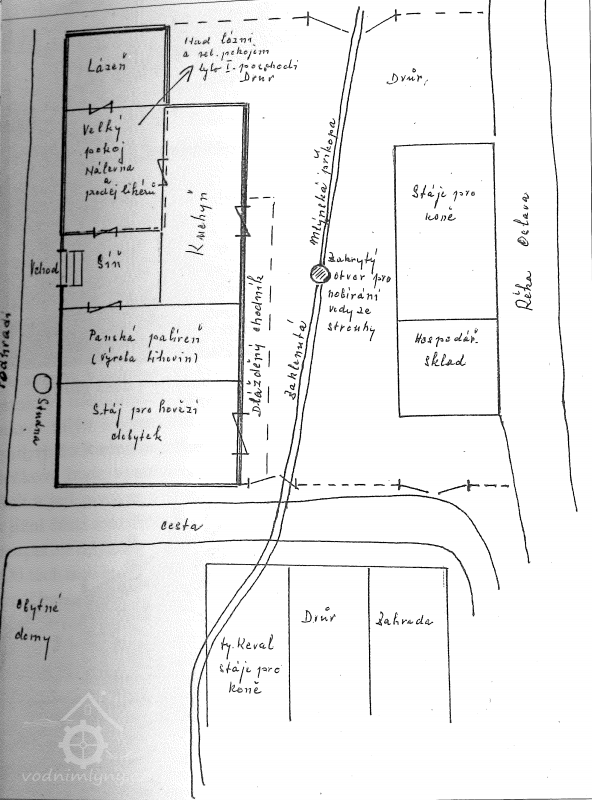 Lázeň
Nad lázní
a vel. pokojem
bylo I. poschodí
Dvůr
Dvůr,
Velký
pokoj
Nálevna
a
prodej likérů
Kuchyň
Mlýnská příkopa
Zaklenutá
Stáje pro
koně
Řeka Oslava
Vchod
Síň
Zakrytý
otvor pro
nabírání
vody ze
strouhy
Panská palíreň
(výroba lihovin)
Dlážděný chodník
Hospodář.
sklad
Podhradí
Studna
Stáj pro hovězí
dobytek
cesta
Obytné
domy
Dvůr
Zahrada
ty. Keval
stáje pro
koně
vodnimlyny.